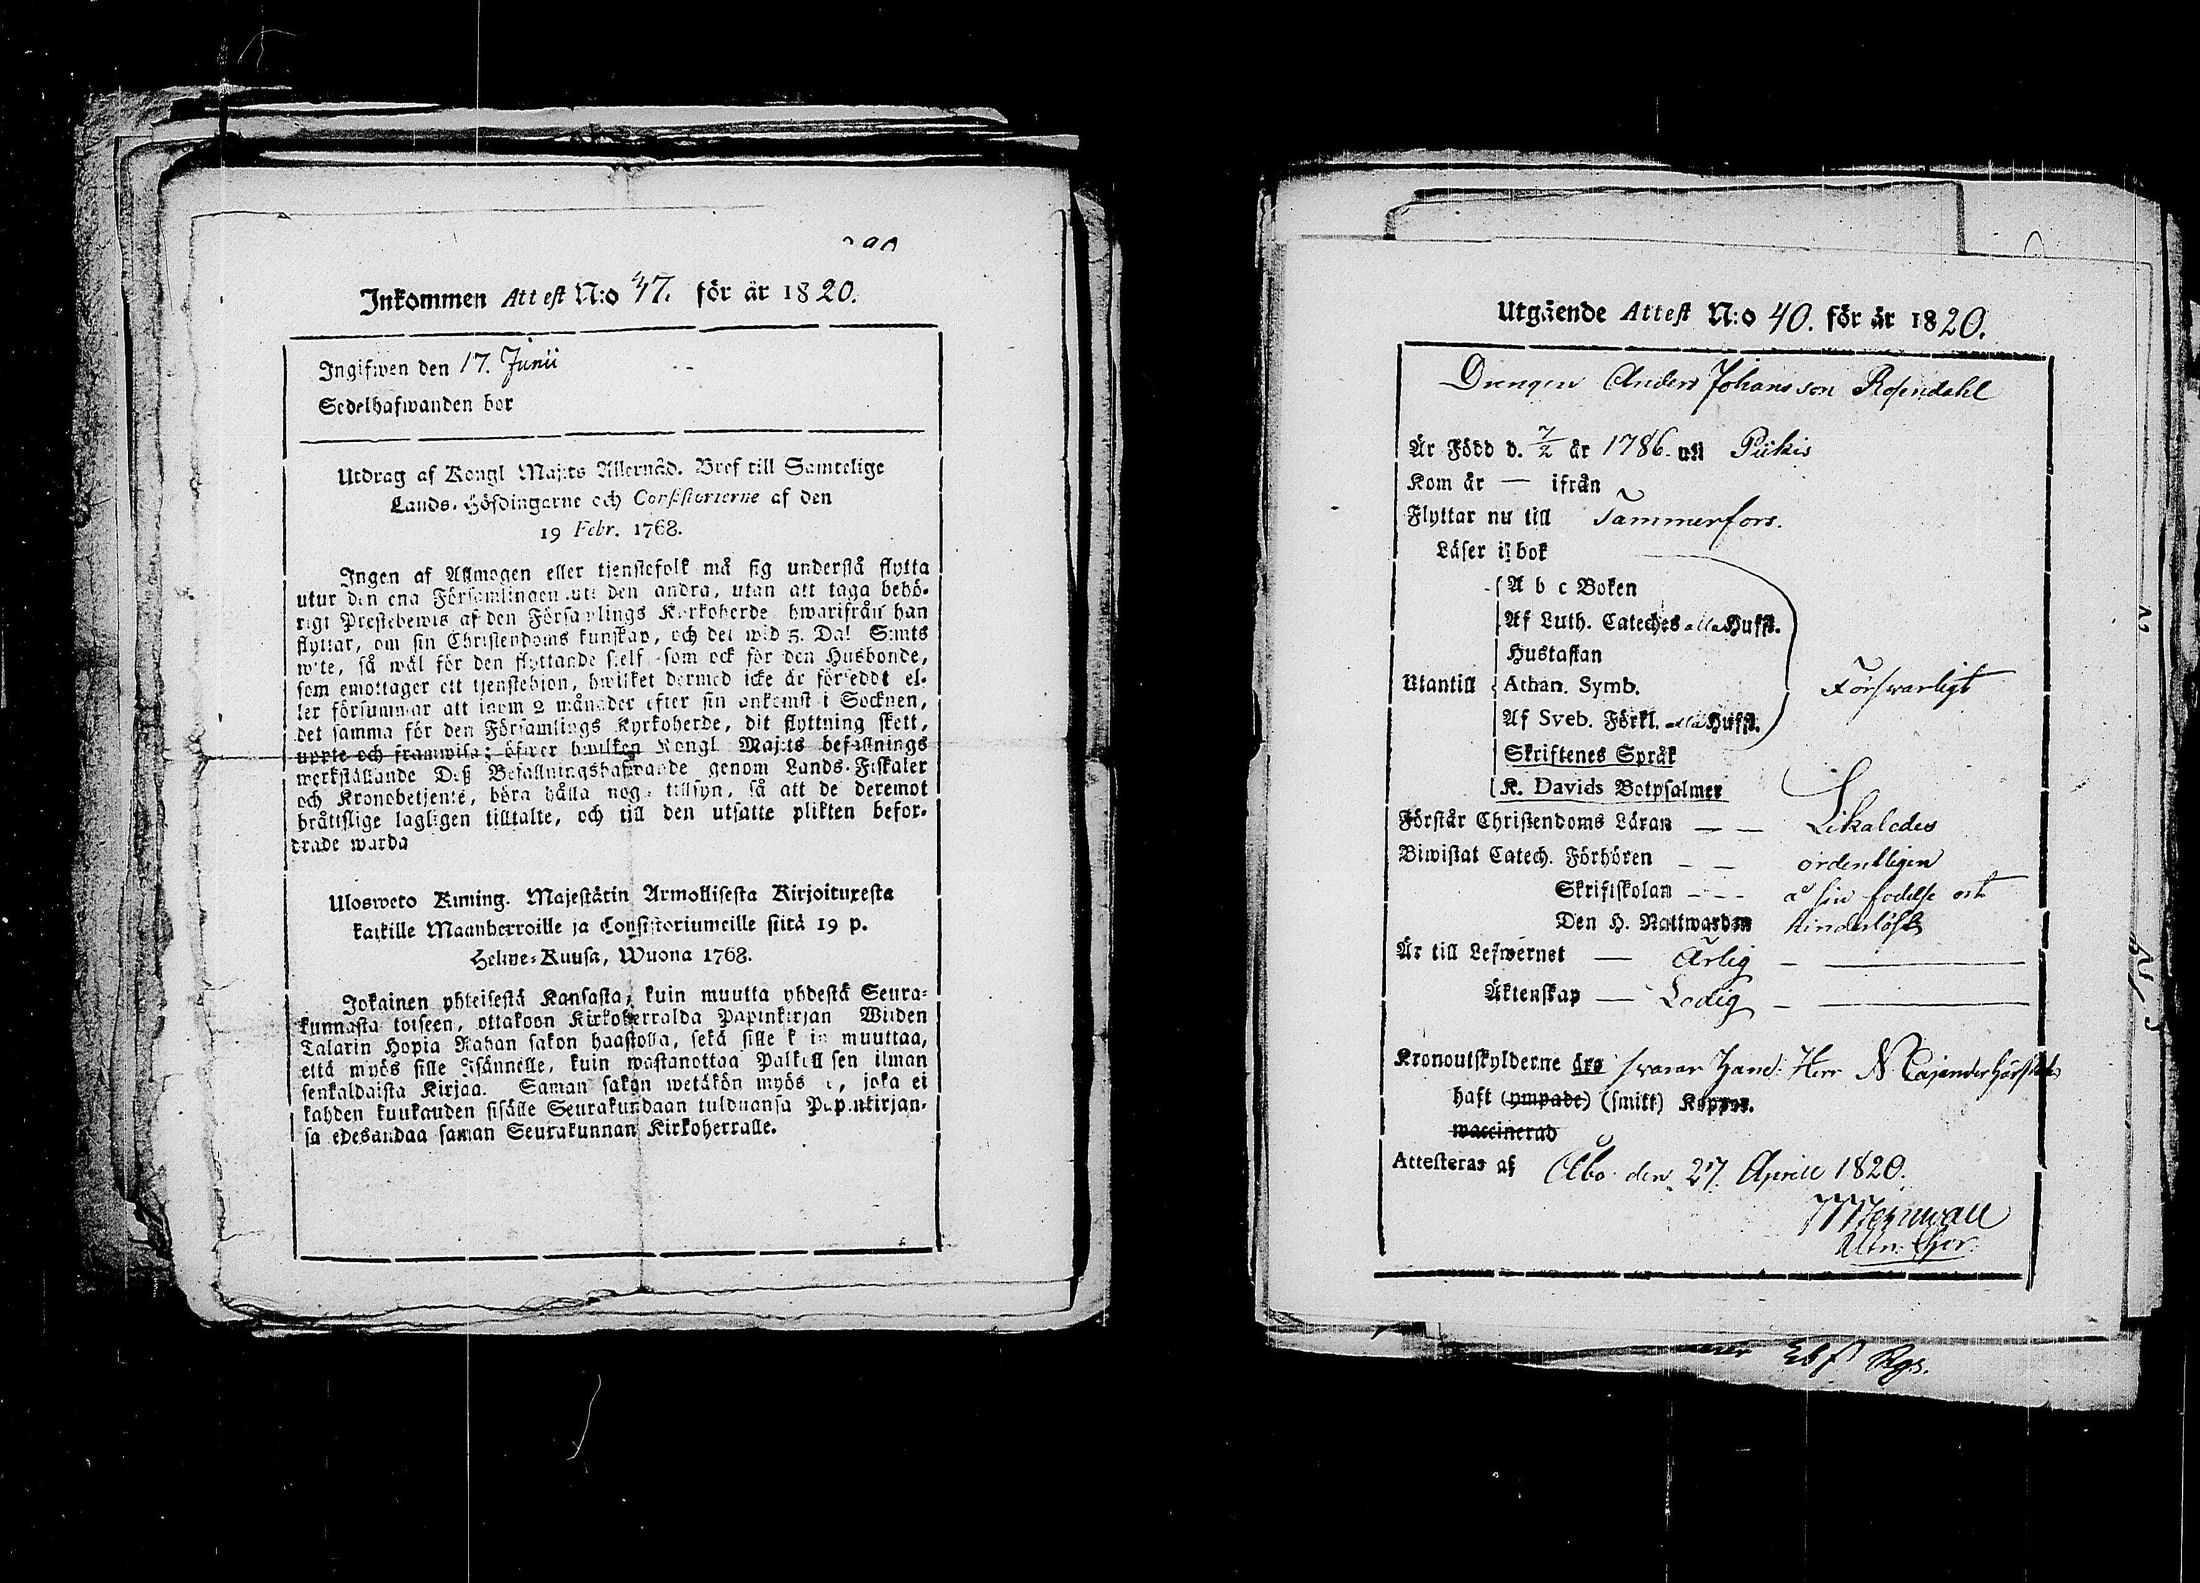 Inkommen Attest N:o 47. för år 1820.
Ingifwen den 17. Junii
Sedelhafwanden bor
Utdrag af Kongl Maj:ts Allernåd. Bref till Samtelige
Lands-Höfdingarne och Consistorierne af den
19 Febr. 1768.
Ingen af Allmogen eller tjenstefolk må sig understå flytta
utur den ena Församlingen uti den andra, utan att taga behö-
rigt Prestebewis af den Församlings Kyrkoherde hwarifrån han
flyttar, om sin Christendoms kunskap, och det wid 5. Dal Smts
wite, så wäl för den flyttande sjelf som ock för den Husbonde,
som emottager ett tjenstehjon, hwilket dermed icke är förseddt el-
ler försummar att inom 2 månader efter sin ankomst i Socknen,
det samma för den Församlings Kyrkoherde, dit flyttning skett,
uppte och framwisa; öfwer hwilken Kongl Maj:ts befallnings
werkställande Deß Befallningshafwande genom Lands-Fiskaler
och Kronobetjente, böra hålla noga tillsyn, så att de deremot
bråttslige lagligen tilltalte, och till den utsatte plikten befor-
drade warda
Ulosweto Kuning. Majestätin Armollisesta Kirjoituxesta
kaikille Maanherroille ja Consistoriumeille siitä 19 p.
Helme-Kuusa, Wuona 1768.
Jokainen yhteisestä Kansasta, kuin muutta yhdestä Seura-
kunnasta toiseen, ottakoon Kirkoherralda Papinkirjan Wiiden
Talarin Hopia Rahan sakon haastolla, sekä sille kuin muuttaa,
että myös sille Isännelle, kuin wastanottaa Palkollisen ilman
senkaldaista Kirjaa. Saman sakon wetäkön myös se, joka ei
kahden kuukauden sisälle Seurakundaan tulduansa Papinkirjan-
sa edesandaa saman Seurakunnan Kirkoherralle.
Utgående Attest N:o 40. för år 1820.
Drengen Anders Johansson Rosendahl
Är Född d. 7/2 år 1786. uti Piikis
Kom år — ifrån
Flyttar nu till Tammerfors.
Läser i bok
A b c Boken
Af Luth. Cateches alla Hufst.
Hustaflan
Utantill Athan. Symb. Förswarligt
Af Sveb. Förkl. alla Hufst.
Skriftenes Språk
K. Davids Botpsalmer
Förstår Christendoms Läran — — Likaledes
Biwistat Catech. Förhören — — ordentligen
Skriftskolan - - - å sin födelse ort
Den H. Nattwarden hinderlöst
Är till Lefwernet — Ärlig — —
Äktenskap — Ledig — —
Kronoutskylderne äro swarar Hand: Herr N. Cajander
haft (ympade) (smitt) Koppor.
waccinerad
Attesteras af Åbo den 27. Aprill 1820.